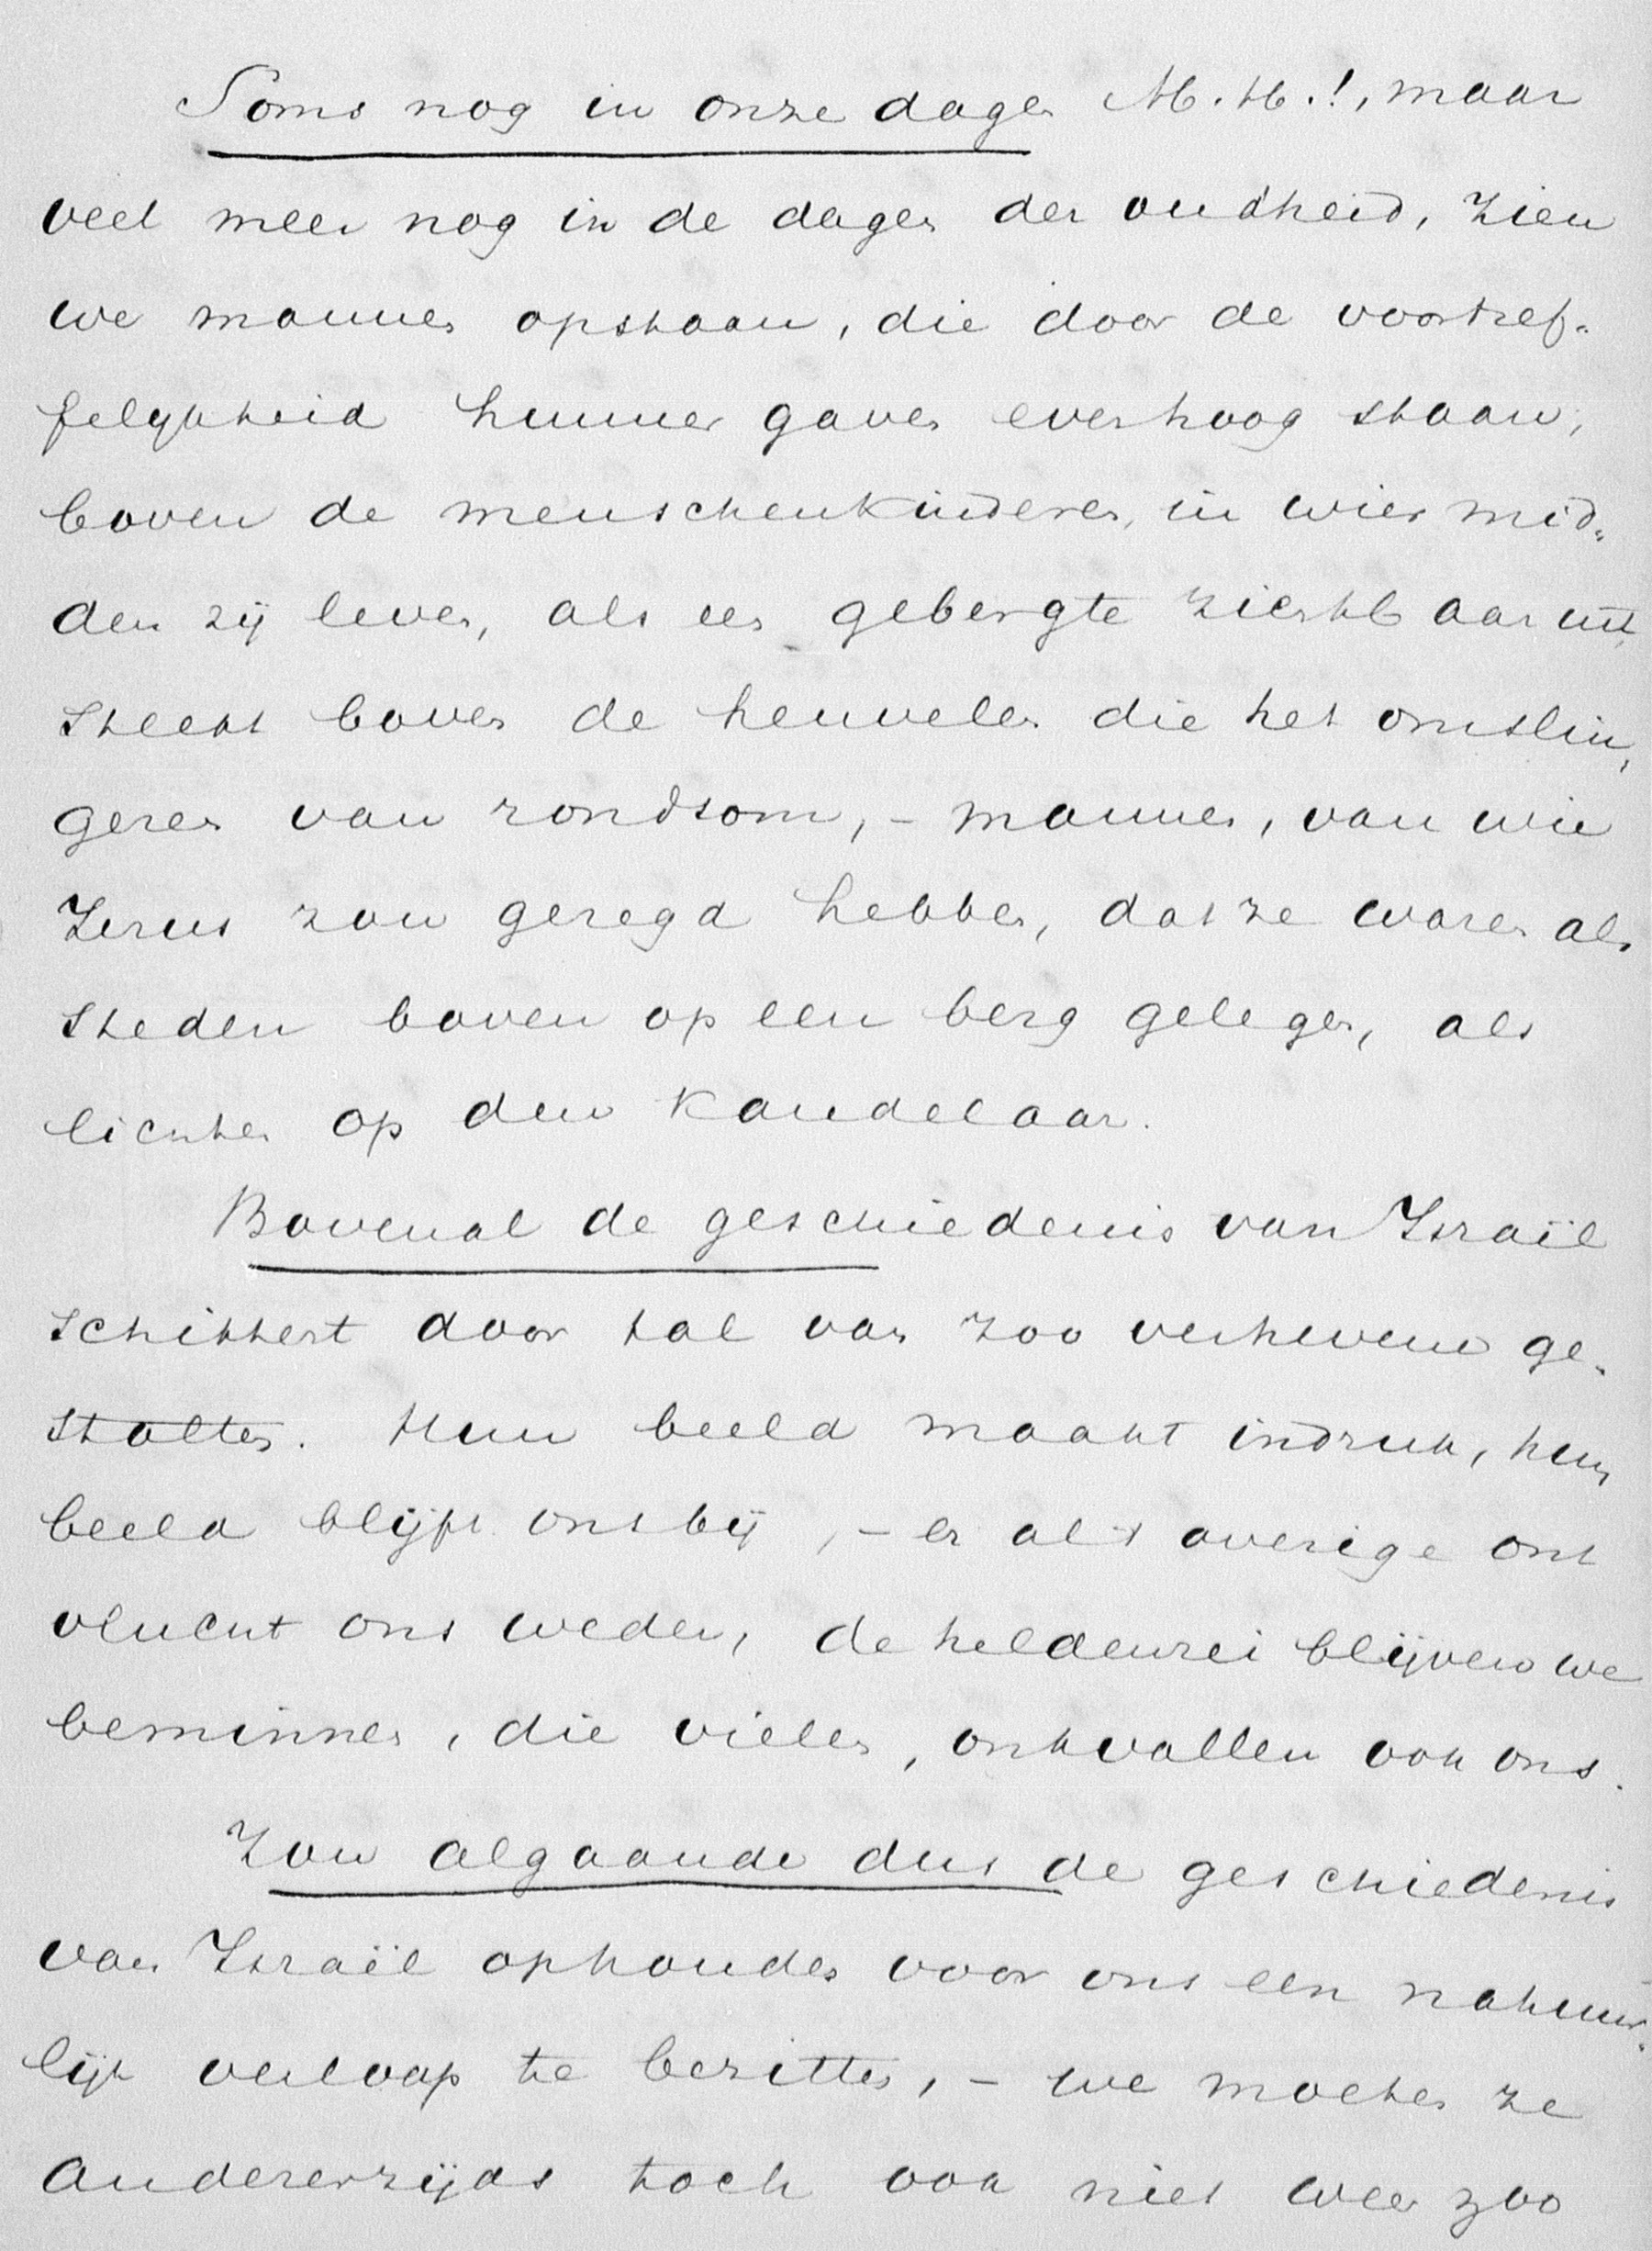 Soms nog in onze dagen M.H.!, maar
veel meer nog in de dagen der oudheid, zien
we mannen opstaan, die door de voortref-
felijkheid hunner gaven evenhoog staan,
boven de menschenkinderen, in wier mid-
den zij leven, als een gebergte zichtbaar uit
steekt boven de heuvelen die het omslin-
geren van rondsom, – mannen, van wie
Jezus zou gezegd hebben, dat ze waren als
steden boven op een berg gelegen, als
lichten op den kandelaar.
Bovenal de geschiedenis van Israël
schittert door tal van zoo verhevene ge-
stalten. Hun beeld maakt indruk, hun
beeld blijft ons bij, – en al 't overige ont
vlucht ons weder, de heldenrei blijven we
beminnen, die vielen, ontvallen ook ons.
Zou algaande dus de geschiedenis
van Israël ophouden voor ons een natuur-
lijk verloop te bezitten, – we moeten ze
anderenzijds toch ook niet weer zoo